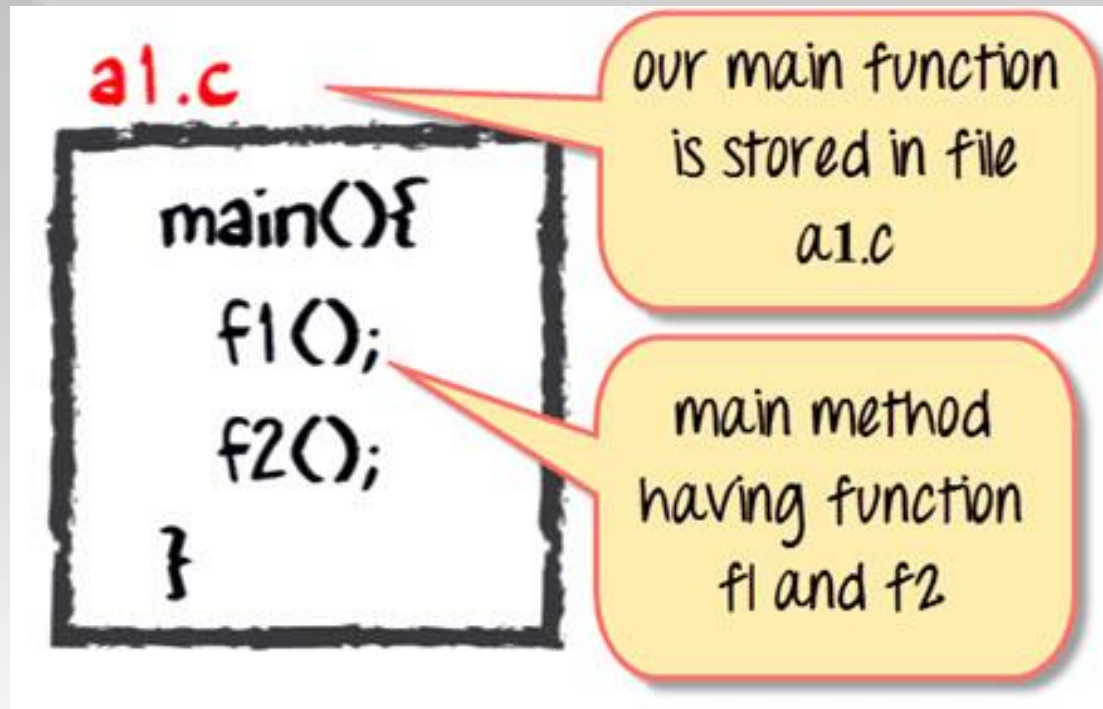 a1.c
main(){
f1();
f2();
}
our main function
is stored in file
a1.c
main method
having function
f1 and f2